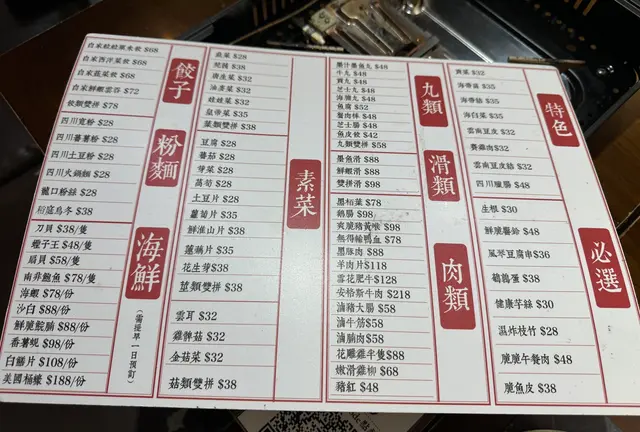 餃子
自家西洋菜餃 $68
自家韮菜餃 $68
自家鮮蝦雲吞 $72
餃類雙拼 $78
粉麵
四川寬粉 $28
四川蕃薯粉 $28
四川土豆粉 $28
四川火鍋麵 $28
龍口粉絲 $28
稻庭烏冬 $38
海鮮
(需提早一日預訂)
刀貝 $38/隻
蟶子王 $48/隻
扇貝 $58/隻
南非鮑魚 $78/隻
海蝦 $78/份
沙白 $88/份
鮮脆脘腩 $88/份
香薯蜆 $98/份
白鱔片 $108/份
美國桶蠔 $188/份
素菜
$28
$38
唐生菜 $32
油麥菜 $32
娃娃菜 $32
皇帝菜 $35
菜類雙拼 $38
豆腐 $28
蕃茄 $28
芽菜 $28
萵筍 $28
土豆片 $28
蘿蔔片 $35
鮮淮山片 $38
蓮藕片 $35
花生芽 $38
荳類雙拼 $38
雲耳 $32
雞髀菇 $32
金菇菜 $32
菇類雙拼 $38
丸類
墨汁墨魚丸 $48
牛丸 $48
貢丸 $48
芝士丸 $48
海膽丸 $48
魚腐 $58
蟹肉棒 $48
芝士腸 $48
魚皮餃 $42
丸類雙拼 $58
滑類
墨魚滑 $88
鮮蝦滑 $88
雙拼滑 $98
肉類
黑柏葉 $78
鵝腸 $98
爽脆豬黃喉 $98
無得輸鴨血 $78
黑豚肉 $88
羊肉片 $118
雪花肥牛 $128
安格斯牛肉 $218
滷豬大腸 $58
滷牛筋 $58
滷腩肉 $58
花雕雞半隻 $88
嫩滑雞柳 $68
豬紅 $48
特色
貢菜 $32
海帶苗 $35
海帶結 $35
海白菜 $35
雲南豆皮 $32
賽雞肉 $32
雲南豆皮結 $32
四川臘腸 $48
必選
生根 $30
鮮脆響鈴 $48
風琴豆腐串 $36
鵪鶉蛋 $38
健康芋絲 $30
温炸枝竹 $28
脆脆午餐肉 $48
脆魚皮 $38